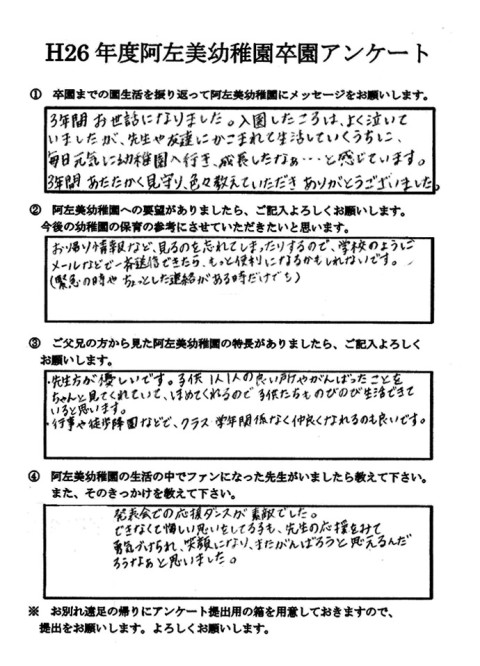 H26 年度阿左美幼稚園卒園アンケート
① 卒園までの園生活を振り返って阿左美幼稚園にメッセージをお願いします。
3年間 お世話になりました。入園したころは、よく泣いて
いましたが、先生や友達にかこまれて生活していくうちに、
毎日元気に幼稚園へ行き、成長したなぁ…と感じています。
3年間 あたたかく見守り、色々教えていただき ありがとうございました。
② 阿左美幼稚園への要望がありましたら、ご記入よろしくお願いします。
今後の幼稚園の保育の参考にさせていただきたいと思います。
お帰り情報など、見るのを忘れてしまったりするので、学校のように
メールなどで一斉送信できたら、もっと便利になるかもしれないです。
(緊急の時や ちょっとした連絡がある時だけでも)
③ ご父兄の方から見た阿左美幼稚園の特長がありましたら、ご記入よろしく
お願いします。
・先生方が優しいです。子供 1人1人の良い所やがんばったことを
ちゃんと見てくれていて、ほめてくれるので子供たちものびのび生活できて
いると思います。
・行事や徒歩降園などで、クラス 学年関係なく仲良くなれるのも良いです。
④ 阿左美幼稚園の生活の中でファンになった先生がいましたら教えて下さい。
また、そのきっかけを教えて下さい。
発表会での応援ダンスが素敵でした。
できなくて悔しい思いをしてる子も、先生の応援をみて
勇気づけられ、笑顔になり、またがんばろうと思えるんだ
ろうなぁと思いました。
※ お別れ遠足の帰りにアンケート提出用の箱を用意しておきますので、
提出をお願いします。よろしくお願いします。